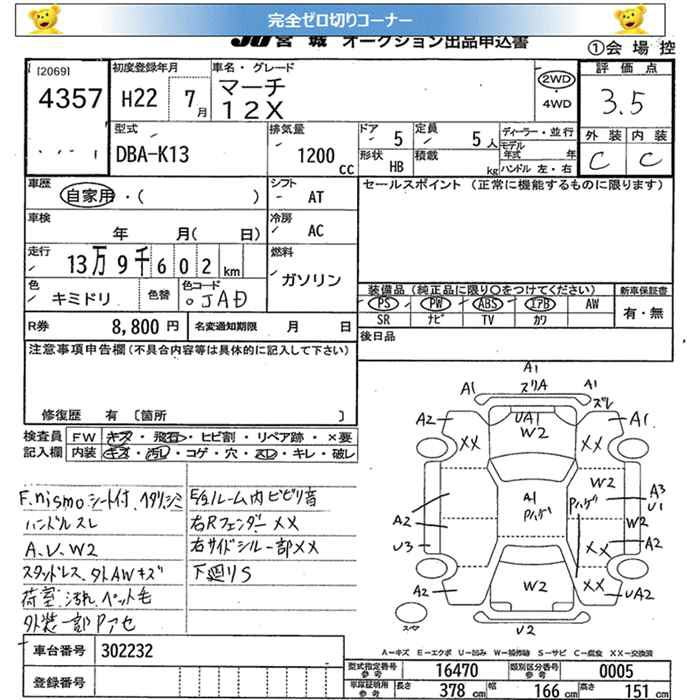 完全ゼロ切りコーナー
JU宮城 オークション出品申込書
①会場控
[2069]
4357
初度登録年月
H22 7月
車名・グレード
マーチ
12X
2WD
・4WD
評価点
3.5
外装 内装
C C
型式
DBA-K13
排気量
1200 CC
ドア 5
形状 HB
定員 5人
積載 kg
ディーラー・並行
モデル年式 年
ハンドル 左・右
車歴
自家用・( )
シフト AT
セールスポイント (正常に機能するものに限ります)
車検
年 月( 日)
冷房 AC
走行
13万9千602km
燃料
ガソリン
色
キミドリ
色替
色コード
JAD
装備品 (純正品に限り○をつけてください)
PS PW ABS エアB AW
SR ナビ TV カワ
新車保証書
有・無
R券 8,800円
名変通知期限 月 日
後日品
注意事項申告欄(不具合内容等は具体的に記入して下さい)
修復歴 有 〔箇所 〕
検査員
記入欄
FW キズ・飛石・ヒビ割・リペア跡・×要
内装 キズ・汚レ・コゲ・穴・スレ・キレ・破レ
F.nismoシート付.ヘタリ.シミ
ハンドルスレ
A.U.W2
スタッドレス.外AWキズ
荷室.汚れ.ペット毛
外装一部Pアセ
E/gルーム内ビビリ音
右RフェンダーXX
右サイドシル一部XX
下廻りS
A1
スリA
A1
A1
ズレ
A2
UA1
W2
A1
XX
XX
A1
Pハゲ
Pハゲ
W2
A3
U1
W2
A2
U3
XX
A2
A2
W2
XX
UA2
U2
スペア
A−キズ E−エクボ U−凹み W−補修跡 S−サビ C−腐食 XX−交換済
車台番号 302232
登録番号
型式指定番号
参考
16470
類別区分番号
参考
0005
車庫証明用
参考
長さ 378 cm 幅 166 cm 高さ 151 cm